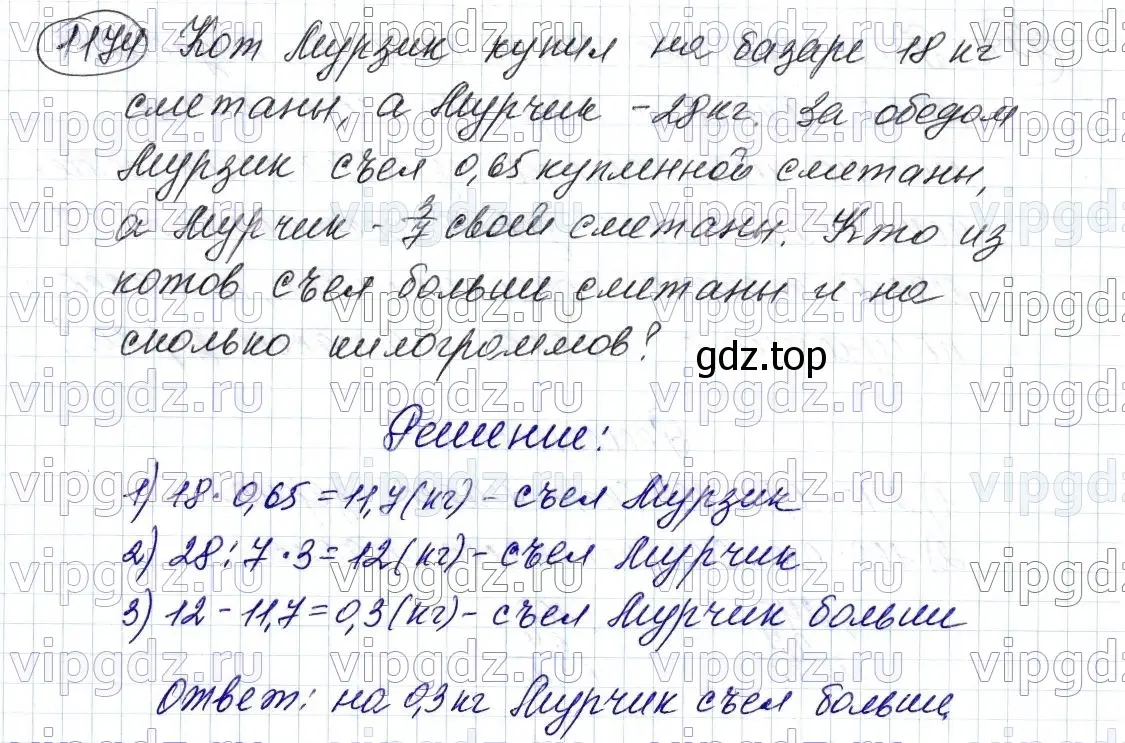 1174 Кот Мурзик купил на базаре 18 кг
сметаны, а Мурчик - 28 кг. За обедом
Мурзик съел 0,65 купленной сметаны,
а Мурчик - 3/7 своей сметаны. Кто из
котов съел больше сметаны и на
сколько килограммов?
gdz.top
Решение:
1) 18 · 0,65 = 11,7 (кг) - съел Мурзик
2) 28 : 7 · 3 = 12 (кг) - съел Мурчик
3) 12 - 11,7 = 0,3 (кг) - съел Мурчик больше
Ответ: на 0,3 кг Мурчик съел больше
vipgdz.ru